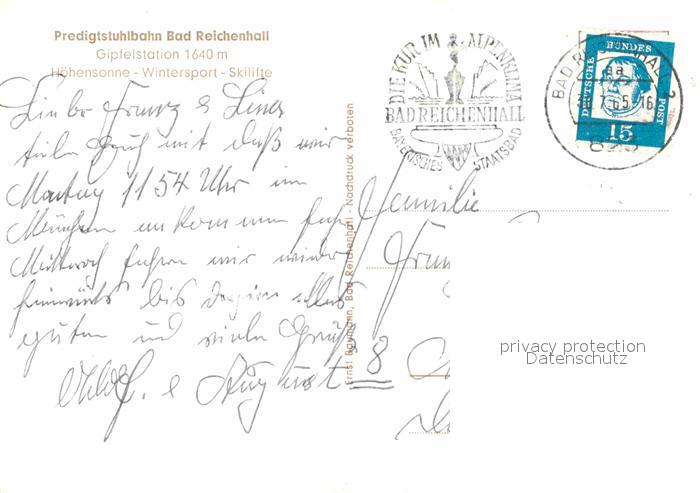 Predigtstuhlbahn Bad Reichenhall
Gipfelstation 1640 m
Höhensonne - Wintersport - Skilifte
Liebe Franz &
teilen Euch mit daß wir
Montag 11 54 Uhr in
München ankommen
Mittwoch fahren wir wieder
heimwärts bis dahin alles
guten und viele Grüße
& August
Ernst Baumann, Bad Reichenhall - Nachdruck verboten
DIE KUR IM ALPENKLIMA
BAD REICHENHALL
BAYERISCHES STAATSBAD
BAD REICHENHALL 2
DEUTSCHE BUNDESPOST
15
Familie
8
privacy protection
Datenschutz